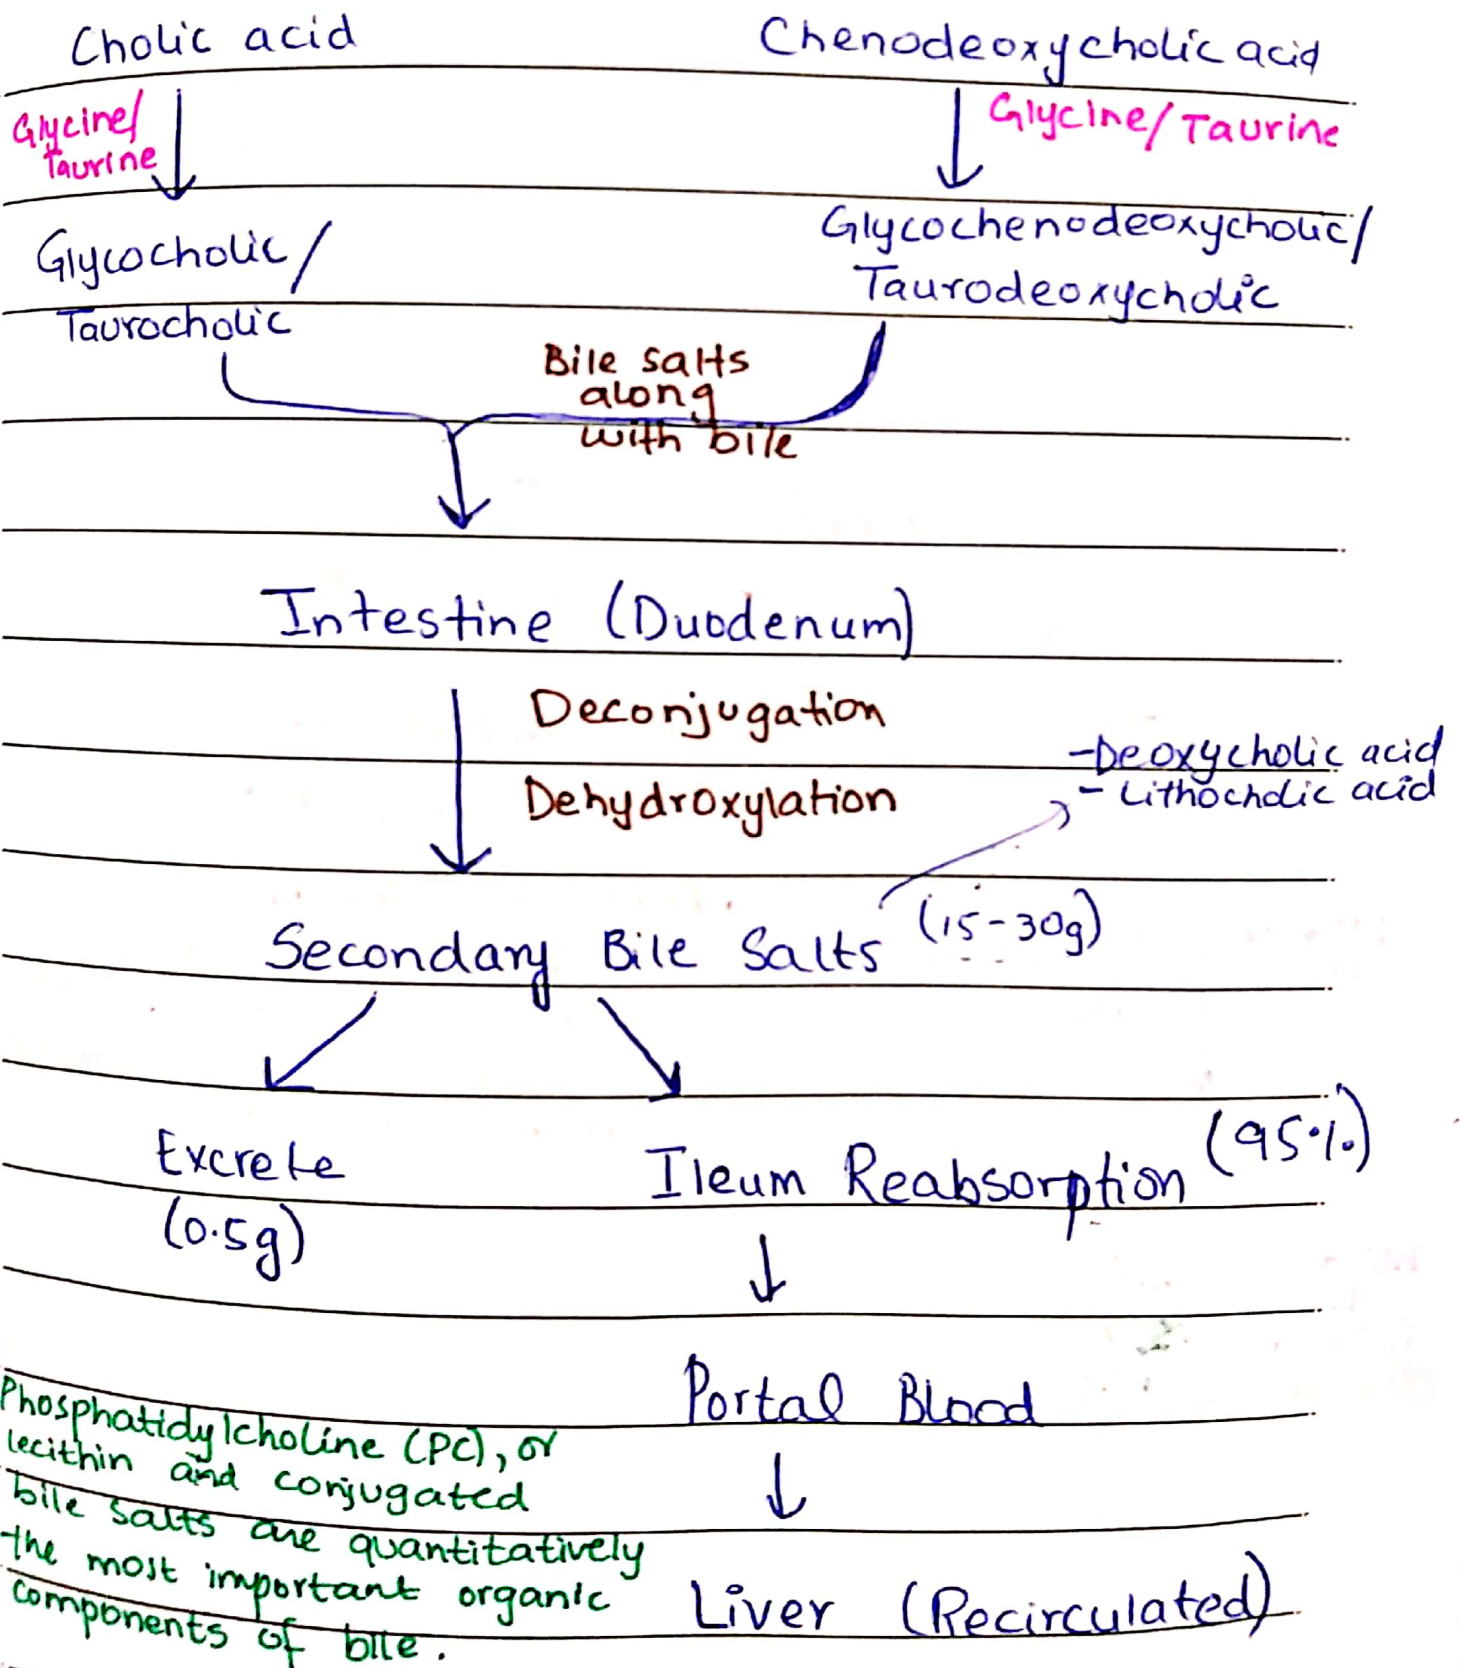 Cholic acid
Chenodeoxycholic acid
Glycine/
Taurine
Glycine/Taurine
Glycocholic/
Taurocholic
Glycochenodeoxycholic/
Taurodeoxycholic
Bile salts
along
with bile
Intestine (Duodenum)
Deconjugation
Dehydroxylation
-Deoxycholic acid
- Lithocholic acid
Secondary Bile Salts (15-30g)
Excrete
(0.5g)
Ileum Reabsorption (95%)
Portal Blood
Liver (Recirculated)
Phosphatidylcholine (PC), or
lecithin and conjugated
bile salts are quantitatively
the most important organic
components of bile.